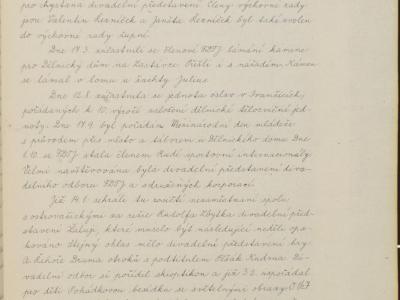 pro chystaná divadelní představení. Členy výchovné rady
jsou Valentin Řezníček a Jenůfa Řezníček byl také zvolen
do výchovné rady župní.
Dne 14.3. zúčastnili se členové FDTJ lámání kamene
pro Dělnický dům na Zastávce. Přišli i s nářadím. Kámen
se lámal v lomu u šachty Julius.
Dne 12.8. zúčastnila se jednota oslav v Ivančicích,
pořádaných k 10. výročí založení dělnické tělocvičné jed-
noty. Dne 14.9. byl pořádán Mezinárodní den mládeže
s průvodem přes město a táborem u Dělnického domu. Dne
1.10. se FDTJ stala členem Rudé sportovní internacionály.
Velmi navštěvována byla divadelní představení diva-
delního odboru FDTJ a sdružených korporací.
Již 14.1. sehráli tu součástí nezaměstnaní spolu
s ostrováckými za režie Rudolfa Zbytka divadelní před-
stavení Lalup, které muselo být následující neděli opa-
kováno. Stejný ohlas mělo divadelní představení hry
A. Lehoře Drama otroků s podtitulem Otsák Kudrna. Di-
vadelní odbor si pořídil skioptikon a již 3.2. uspořádal
pro děti Pohádkovou besídku se světelnými obrazy.